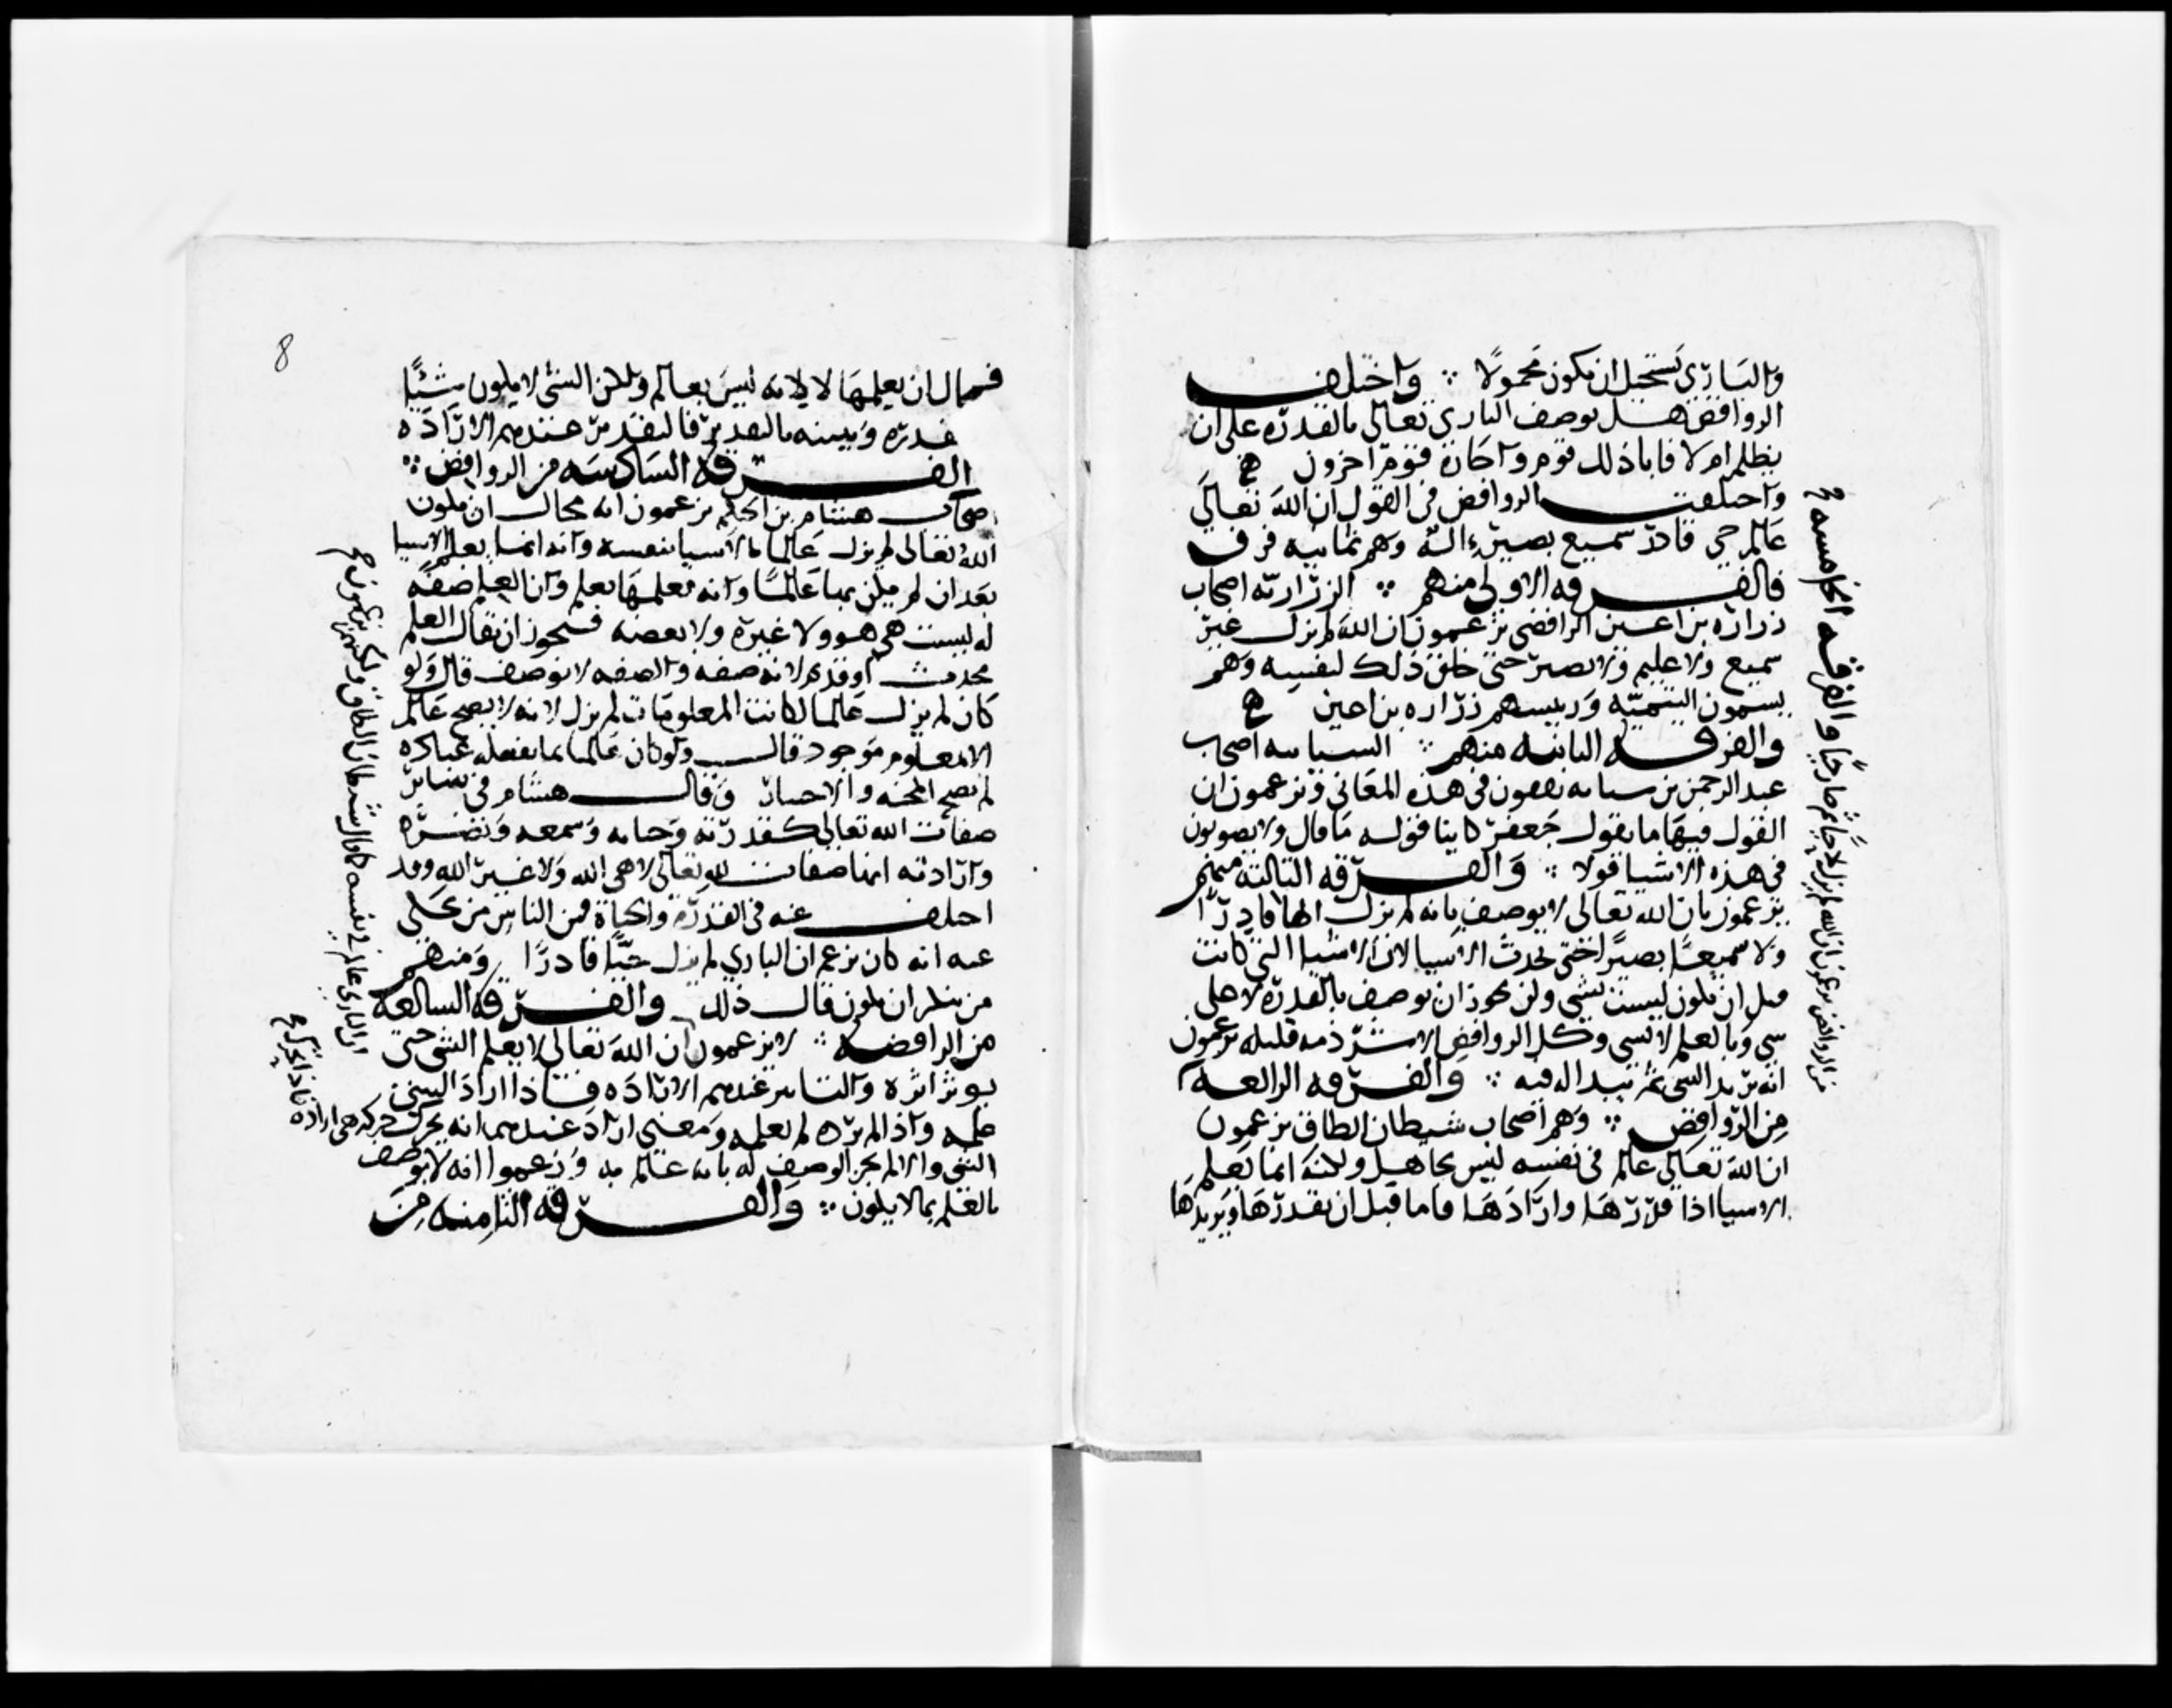 والباري يستحيل ان يكون محمولا ⁘ واختلف
الروافض هل يوصف الباري تعالى بالقدرة على ان
يظلم ام لا فابا ذلك قوم واجازه قوم اخرون
واختلفت الروافض في القول ان الله تعالى
عالم حي قادر سميع بصير اله وهم ثمانيه فرق
فالفرقه الاولى منهم ⁘ الزراريه اصحاب
زراره بن اعين الرافضي يزعمون ان الله لم يزل غير
سميع ولا عليم ولا بصير حتى خلق ذلك لنفسه وهم
يسمون التيميّه ورييسهم زراره بن اعين
والفرقه الثانيه منهم ⁘ السبابيه اصحاب
عبد الرحمن بن سبابه يقفون في هذه المعاني ويزعمون ان
القول فيها ما يقول جعفر كاينا قوله ما قال ولا يصوبون
في هذه الاشيا قولا ⁘ والفرقه الثالثه منهم
يزعمون بان الله تعالى لا يوصف بانه لم يزل الها قادرا
ولا سميعا بصيرا حتى يحدث الاشيا لان الاشيا التي كانت
قبل ان تكون ليست بشي ولن يجوز ان يوصف بالقدرة لا على
شي وبالعلم لا بشي وكل الروافض الا شرذمه قليله يزعمون
انه يريد الشي ثم يبدا له فيه ⁘ والفرقه الرابعه
من الروافض ⁘ وهم اصحاب شيطان الطاق يزعمون
ان الله تعالى عالم في نفسه ليس بجاهل ولكنه انما يعلم
الاشيا اذا قدّرها وارادها فاما قبل ان يقدرها ويريدها
والفرقه الخامسه
من الروافض يزعمون ان الله لم يزل لا حيا ثم صار حيا
8
فمحال ان يعلمها لا لانه ليس بعالم ولكن الشي لا يكون شيئًا
يقدره ويثبته بالتقدير فالتقدير عندهم الاراده
الفرقه السادسه من الروافض ⁘
اصحاب هشام بن الحكم يزعمون انه محال ان يكون
الله تعالى لم يزل عالما بالاشيا بنفسه وانه انما يعلم الاشيا
بعد ان لم يكن بها عالمًا وانه يعلمها بعلم وان العلم صفه
له ليست هي هو ولا غيره ولا بعضه فيجوز ان يقال العلم
محدث او قديم لانه صفه والصفه لا توصف قال ولو
كان لم يزل عالما لكانت المعلومات لم يزل لانه لا يصح عالم
الا بمعلوم موجود قال ولو كان عالما بما يفعله عباده
لم تصح المحنه والاختبار وقال هشام في ساير
صفات الله تعالى كقدرته وحياته وسمعه وبصره
وارادته انها صفات لله تعالى لا هي الله ولا غير الله وقد
اختلف عنه في القدرة والحياة فمن الناس من يحكي
عنه انه كان يزعم ان الباري لم يزل حيًّا قادرًا ومنهم
من ينكر ان يكون قال ذلك والفرقه السابعه
من الرافضه ⁘ لا يزعمون ان الله تعالى لا يعلم الشي حتى
يوثر اثره والتاثير عندهم الاراده فاذا اراد الشي
علمه واذا لم يرده لم يعلمه ومعنى اراد عندهم انه يحرك حركه هي اراده
الشي والا لم يجز الوصف له بانه عالم به وزعموا انه لا يوصف
بالعلم بما لا يكون ⁘ والفرقه الثامنه من
ان الباري عالم في نفسه كما قال شيطان الطاق ولكنهم يزعمون
فاذا تحرك